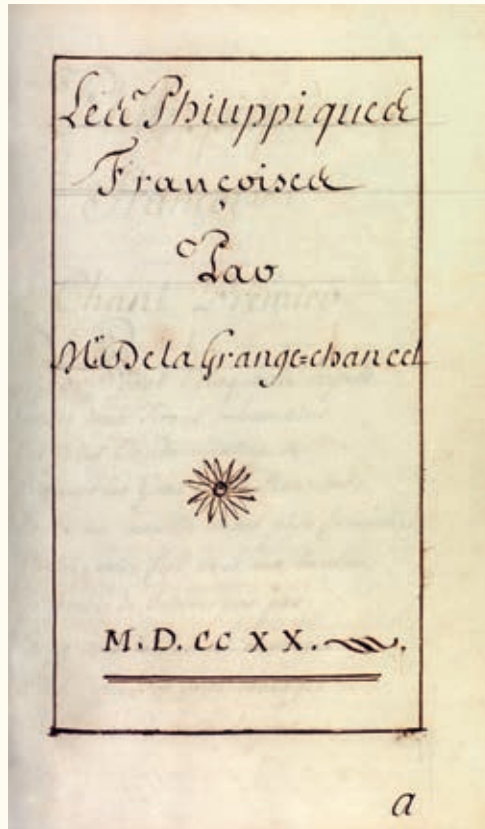 Les Philippiques
Françoises
Par
Mr. De la Grange=chancel
M. D. CC XX.
a